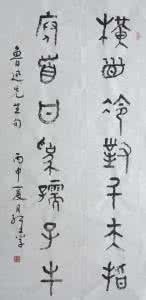 橫眉冷對千夫指
府首甘為孺子牛
魯迅先生句
丙申夏月